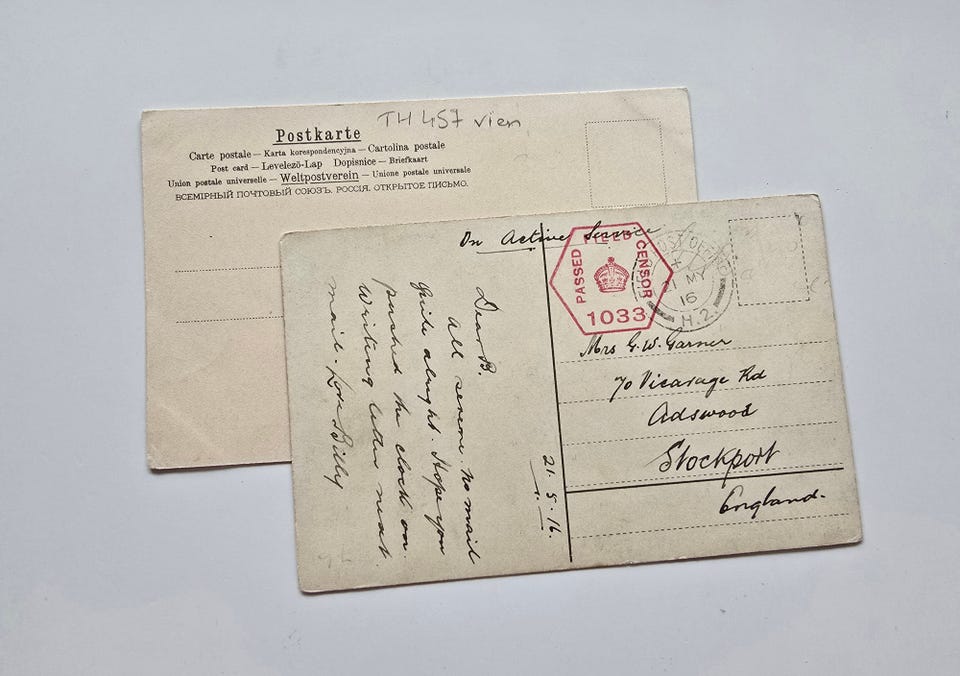 TH 457 vien
Postkarte
Carte postale — Karta korespondencyjna — Cartolina postale
Post card — Levelező-Lap Dopisnice — Briefkaart
Union postale universelle — Weltpostverein — Unione postale universale
ВСЕМІРНЫЙ ПОЧТОВЫЙ СОЮЗЪ. РОССІЯ. ОТКРЫТОЕ ПИСЬМО.
On Active Service
PASSED FIELD CENSOR
1033
POST OFFICE
MY
16
H.2.
Dear B.
All serene no mail
quite alright. Hope you
pushed the clock on
Writing letter next
mail. Love Billy
21.5.16.
Mrs G.W. Garner
70 Vicarage Rd
Adswood
Stockport
England.